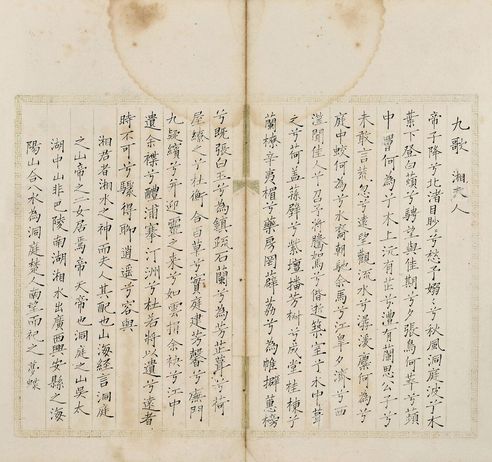 九歌 湘夫人
帝子降兮北渚目眇兮愁予嫋兮秋風洞庭波兮木
葉下登白薠兮騁望與佳期兮夕張鳥何萃兮蘋
中罾何為兮木上沅有芷兮澧有蘭思公子兮
未敢言荒忽兮遠望觀流水兮潺湲麋何為兮
庭中蛟何為兮水裔朝馳余馬兮江皋夕濟兮西
澨聞佳人兮召予將騰駕兮偕逝築室兮水中葺
之兮荷蓋蓀壁兮紫壇播芳椒兮成堂桂棟兮
蘭橑辛夷楣兮藥房罔薜荔兮為帷擗蕙櫋
兮既張白玉兮為鎮疏石蘭兮為芳芷葺兮荷
屋繚之兮杜衡合百草兮實庭建芳馨兮廡門
九嶷繽兮并迎靈之來兮如雲捐余袂兮江中
遺余褋兮醴浦搴汀洲兮杜若將以遺兮遠者
時不可兮驟得聊逍遙兮容與
湘君者湘水之神而夫人其配也山海經言洞庭
之山帝之二女居焉帝天帝也洞庭之山吳太
湖中山非巴陵南湖湘水出廣西興安縣之海
陽山合八水為洞庭楚人南望而祀之